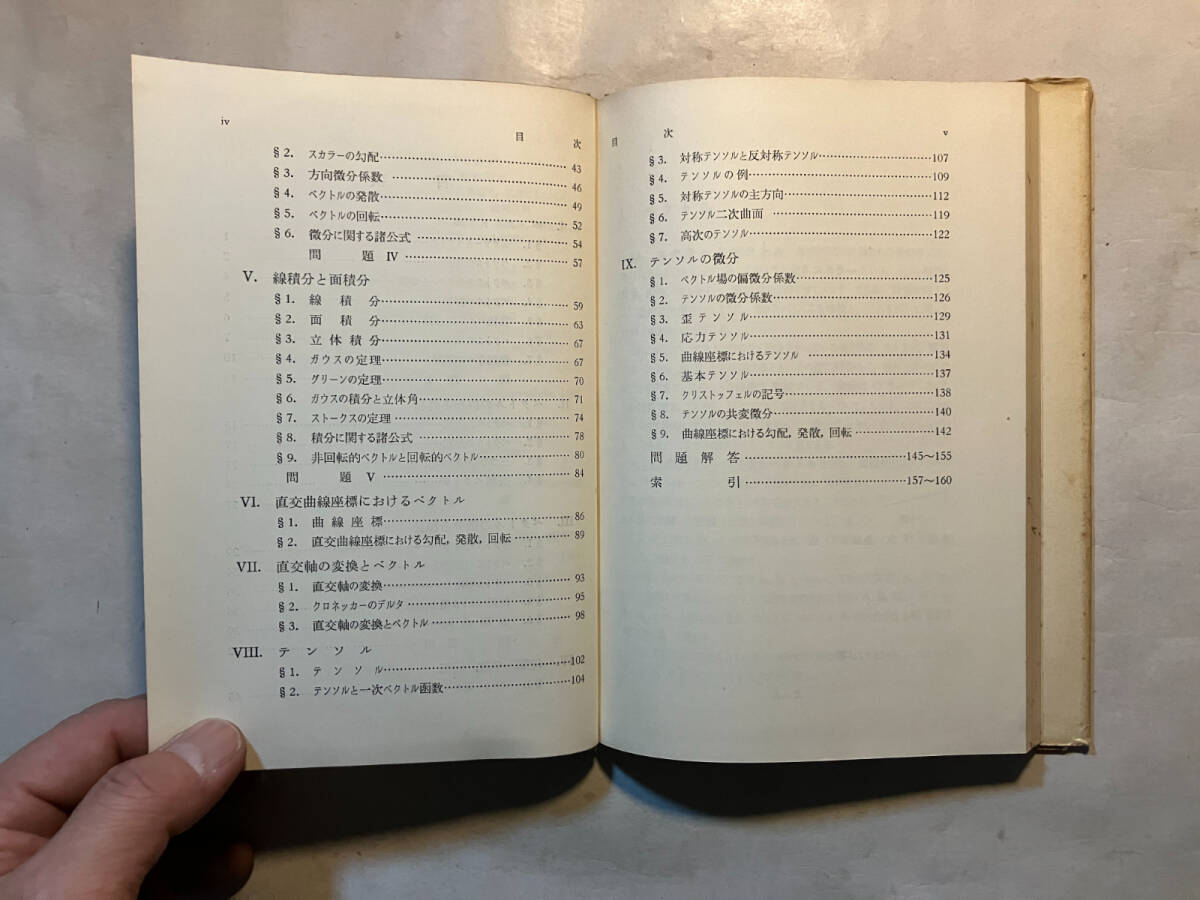 iv
目 次
§2. スカラーの勾配……43
§3. 方向微分係数……46
§4. ベクトルの発散……49
§5. ベクトルの回転……52
§6. 微分に関する諸公式……54
問 題 IV……57
V. 線積分と面積分
§1. 線 積 分……59
§2. 面 積 分……63
§3. 立体積分……67
§4. ガウスの定理……67
§5. グリーンの定理……70
§6. ガウスの積分と立体角……71
§7. ストークスの定理……74
§8. 積分に関する諸公式……78
§9. 非回転的ベクトルと回転的ベクトル……80
問 題 V……84
VI. 直交曲線座標におけるベクトル
§1. 曲線座標……86
§2. 直交曲線座標における勾配, 発散, 回転……89
VII. 直交軸の変換とベクトル
§1. 直交軸の変換……93
§2. クロネッカーのデルタ……95
§3. 直交軸の変換とベクトル……98
VIII. テ ン ソ ル
§1. テ ン ソ ル……102
§2. テンソルと一次ベクトル函数……104
目 次 v
§3. 対称テンソルと反対称テンソル……107
§4. テンソルの例……109
§5. 対称テンソルの主方向……112
§6. テンソル二次曲面……119
§7. 高次のテンソル……122
IX. テンソルの微分
§1. ベクトル場の偏微分係数……125
§2. テンソルの微分係数……126
§3. 歪テンソル……129
§4. 応力テンソル……131
§5. 曲線座標におけるテンソル……134
§6. 基本テンソル……137
§7. クリストッフェルの記号……138
§8. テンソルの共変微分……140
§9. 曲線座標における勾配, 発散, 回転……142
問題解答……145〜155
索 引……157〜160